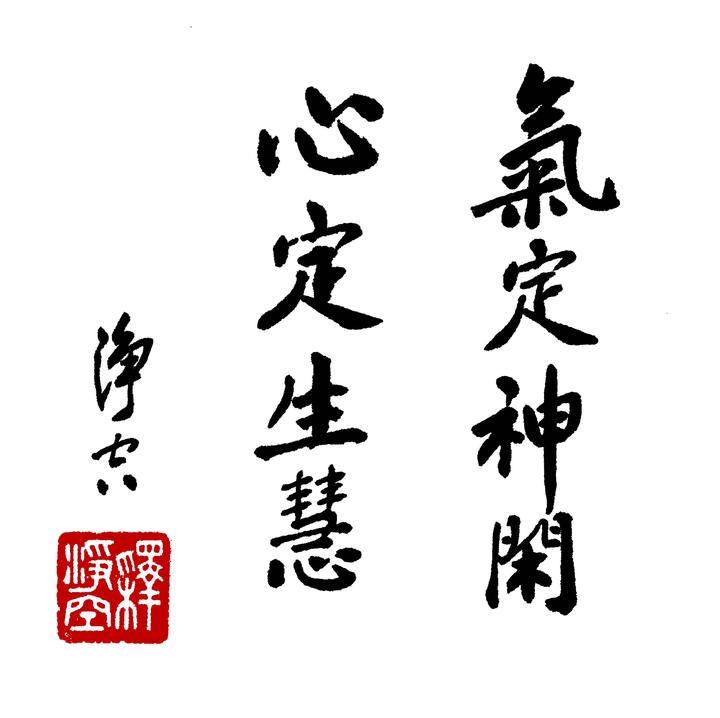 氣定神閑
心定生慧
淨空
釋淨空